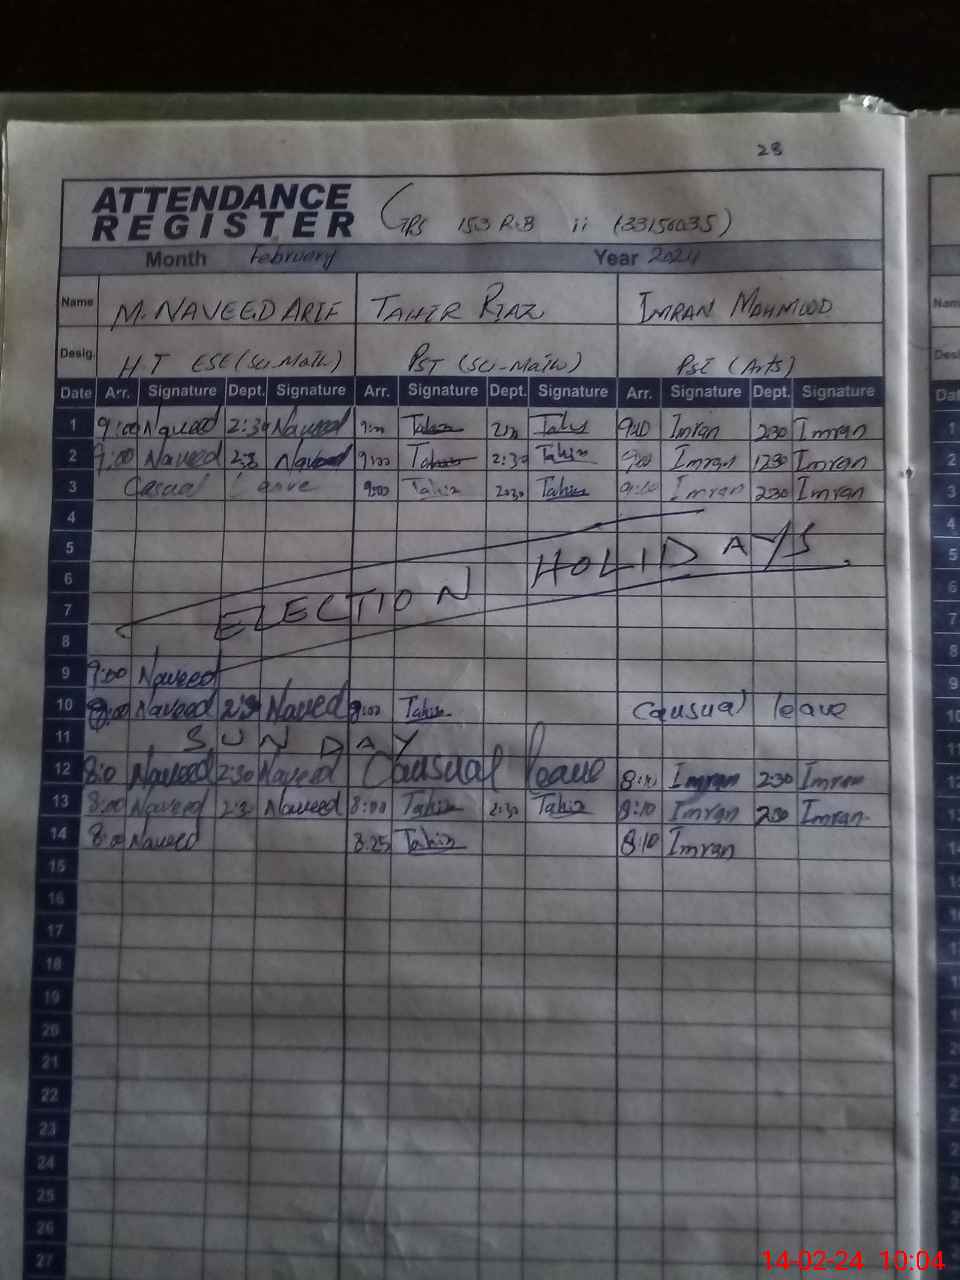 28
ATTENDANCE
REGISTER GPS 153 R.B ii (33150035)
Month February Year 2024
Name M. NAVEED ARIF TAHIR RIAZ IMRAN MAHMOOD
Desig. H.T ESE (Sci-Math) PST (Sci-Math) PST (Arts)
Date Arr. Signature Dept. Signature Arr. Signature Dept. Signature Arr. Signature Dept. Signature
1 9:00 Naveed 2:30 Naveed 9:00 Tahir Tahir 9:10 Imran 2:30 Imran
2 9:00 Naveed 2:3 Naveed 9:00 Tahir 2:30 Tahir 9:00 Imran Imran
3 Casual Leave 9:00 Tahir 2:30 Tahir 9:10 Imran 2:30 Imran
4
5
6
7
8
ELECTION HOLIDAYS
9 9:00 Naveed
10 8:00 Naveed 2:30 Naveed 8:00 Tahir Causual leave
11 SUNDAY
12 8:0 Naveed 2:30 Naveed Causual leave 8:10 Imran 2:30 Imran
13 8:00 Naveed 2:3 Naveed 8:00 Tahir 2:30 Tahir 8:10 Imran 2:30 Imran
14 8:0 Naveed 8:25 Tahir 8:10 Imran
15
16
17
18
19
20
21
22
23
24
25
26
27
14-02-24 10:04